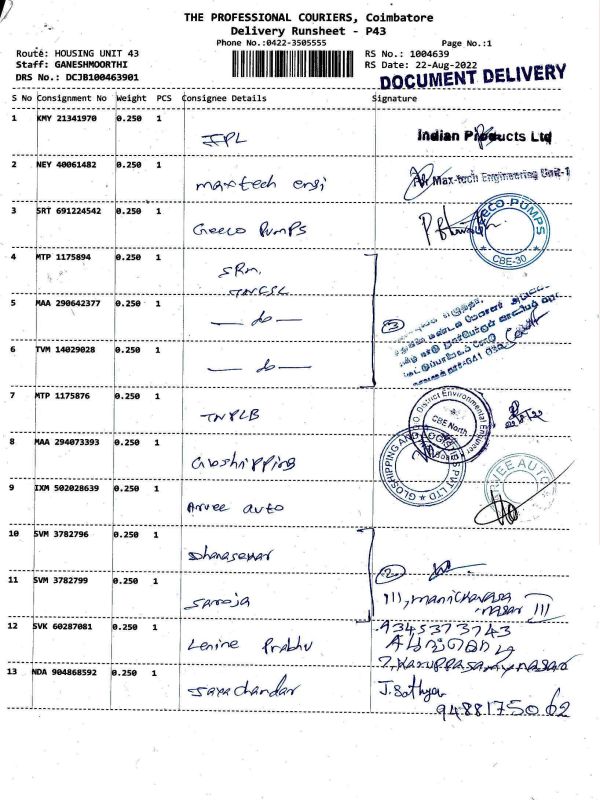 THE PROFESSIONAL COURIERS, Coimbatore
Delivery Runsheet - P43
Phone No.:0422-3505555
Page No.:1
Route: HOUSING UNIT 43
RS No.: 1004639
Staff: GANESHMOORTHI
RS Date: 22-Aug-2022
DRS No.: DCJB100463901
DOCUMENT DELIVERY
S No Consignment No Weight PCS Consignee Details Signature
1 KMY 21341970 0.250 1 IPL Indian Products Ltd
2 NEY 40061482 0.250 1 maxtech engi Max-tech Engineering Unit-1
3 SRT 691224542 0.250 1 Geeco Pumps GEECO-PUMPS CBE-30
4 MTP 1175894 0.250 1 SRm. TNCSC
5 MAA 290642377 0.250 1 — do — 3
6 TVM 14029028 0.250 1 — do —
7 MTP 1175876 0.250 1 TNPCB District Environmental Engineer CBE North
8 MAA 294073393 0.250 1 Gloshipping GLOSHIPPING AND LOGISTICS PVT LTD
9 IXM 502028639 0.250 1 Arvee auto ARVEE AUTO
10 SVM 3782796 0.250 1 Dhanasekar
11 SVM 3782799 0.250 1 Saroja 2 111, manickavasa nagar III
12 SVK 60287081 0.250 1 Lenine Prabhu 9345373743
13 NDA 904868592 0.250 1 Jayachandar J. Sathya
9488175062